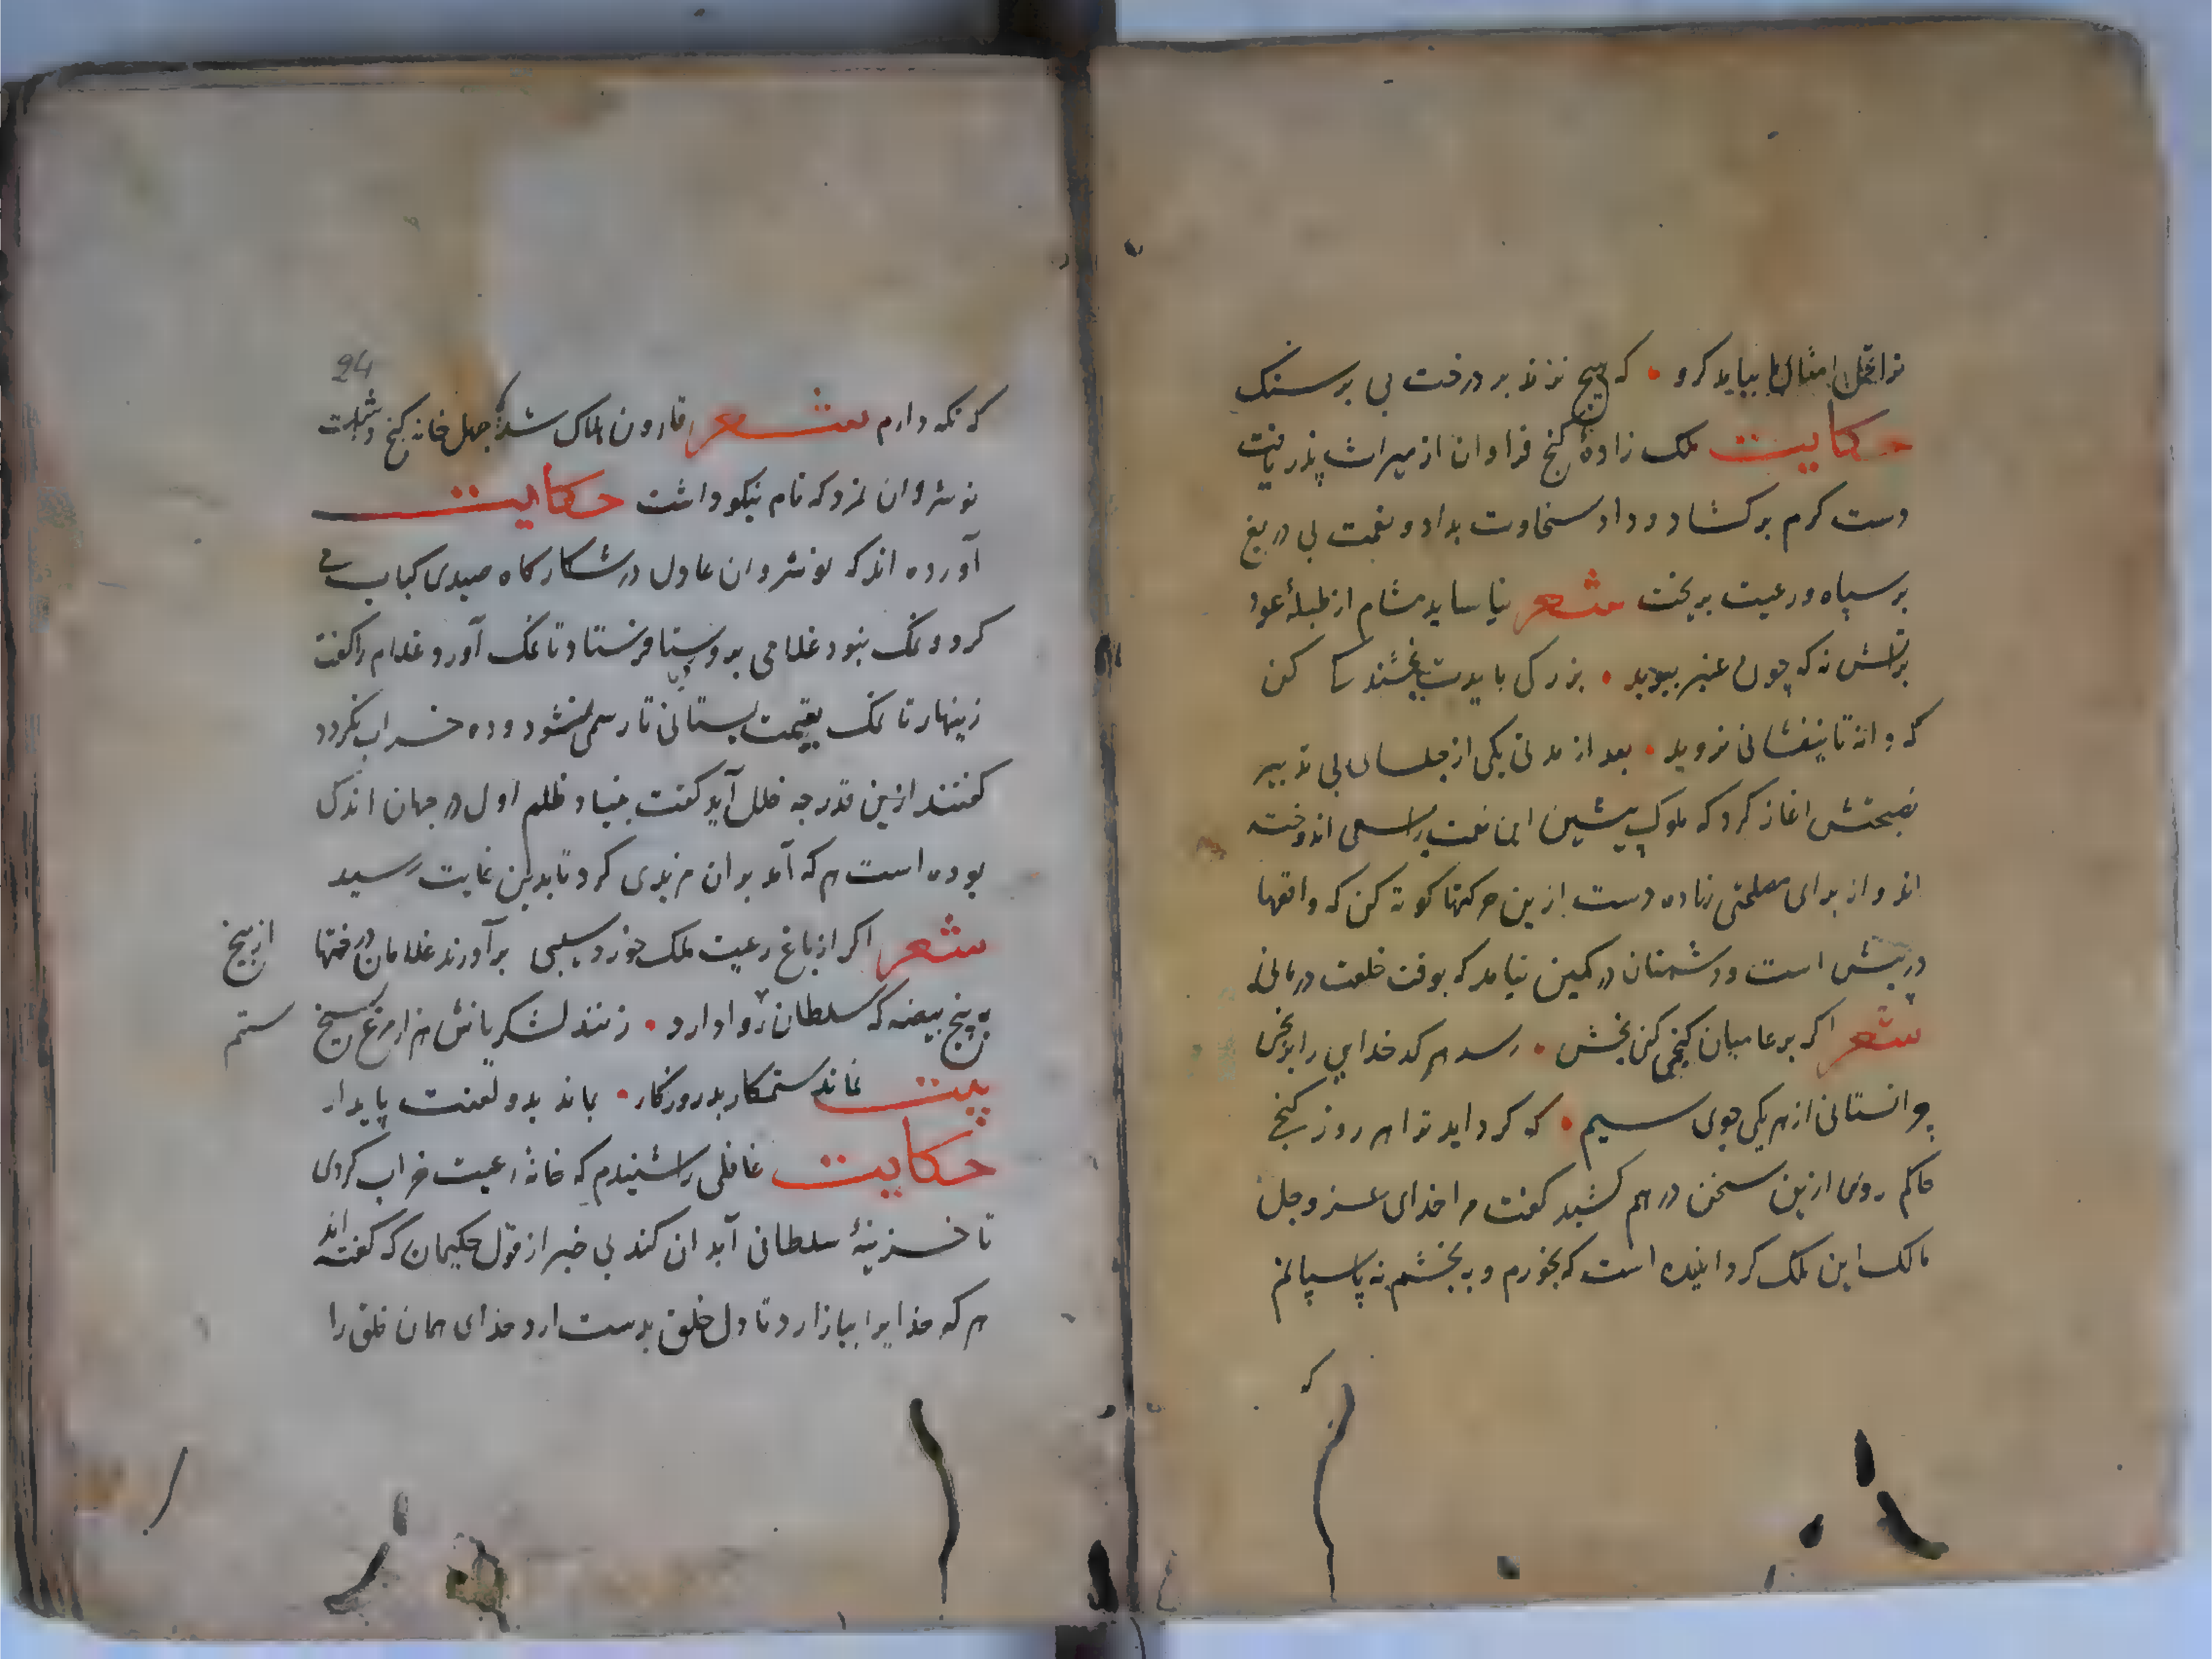 ترا تحمل امثال ما بباید کرد • که هیچ نزند بر درخت بی بر سنک
حکایت ملک زادهٔ کنج فراوان از میراث پدر یافت
دست کرم بر کشاد و داد سخاوت بداد و نعمت بی دریغ
بر سپاه و رعیت بریخت شعر نیاساید مشام از طبلهٔ عود
بر اتش نه که چون عنبر ببوید • بزرکی بایدت بخشندکی کن
که دانه تا نیفشانی نروید • بعد از مدتی یکی از جلسای بی تدبیر
نصیحتش اغاز کرد که ملوک پیشین این نعمت را بسعی اندوخته
اند و از برای مصلحتی نهاده دست ازین حرکتها کوته کن که واقعها
در پیش است و دشمنان در کمین نباید که بوقت خلعت در مانی
شعر اکر بر عامیان کنجی کنی بخش • رسد هر کدخدایی را برنجی
چرا نستانی از هر یکی جوی سیم • که کرد اید ترا هر روز کنجی
حاکم روی ازین سخن در هم کشید کفت مرا خدای عز و جل
مالک این ملک کردانیده است که بخورم و ببخشم نه پاسبانم
که
24
که نکه دارم شعر قارون هلاک شد که چهل خانه کنج داشت
نوشروان نمرد که نام نیکو داشت حکایت
آورده اند که نوشروان عادل در شکارکاه صیدی کباب می
کرد و نمک نبود غلامی بروستا فرستاد تا نمک آورد غلام را کفت
زینهار تا نمک بقیمت بستانی تا رسمی نشود و ده خراب نکردد
کفتند ازین قدر چه خلل آید کفت بنیاد ظلم اول در جهان اندکی
بوده است هر که آمد بر ان مزیدی کرد تا بدین غایت رسید
شعر اکر از باغ رعیت ملک خورد سیبی برآورند غلامان درختها از بیخ
به پنج بیضه که سلطان روا دارد • زنند لشکریانش هزار مرغ بسیخ ستم
بیت نماند ستمکار بد روزکار • بماند بدو لعنت پایدار
حکایت غافلی را شنیدم که خانهٔ رعیت خراب کردی
تا خزینهٔ سلطانی آبدان کند بی خبر از قول حکیمان که کفته اند
هر که خدایرا بیازارد تا دل خلق بدست ارد خدای همان خلق را